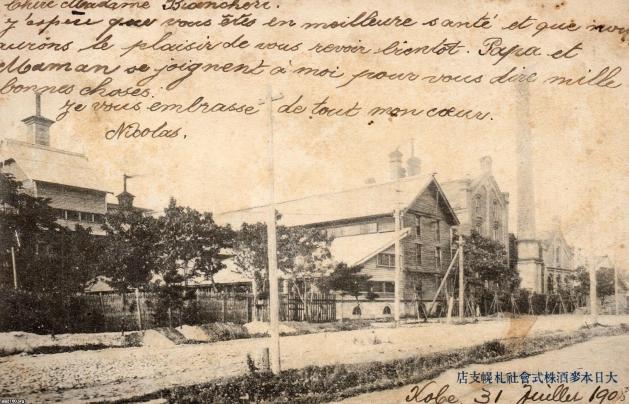 Chère Madame Biancheri.
J'espère que vous êtes en meilleure santé et que nous
aurons le plaisir de vous revoir bientot. Papa et
Maman se joignent à moi pour vous dire mille
bonnes choses.
Je vous embrasse de tout mon cœur.
Nicolas.
大日本麥酒株式會社札幌支店
Kobe, 31 Juillet 1908